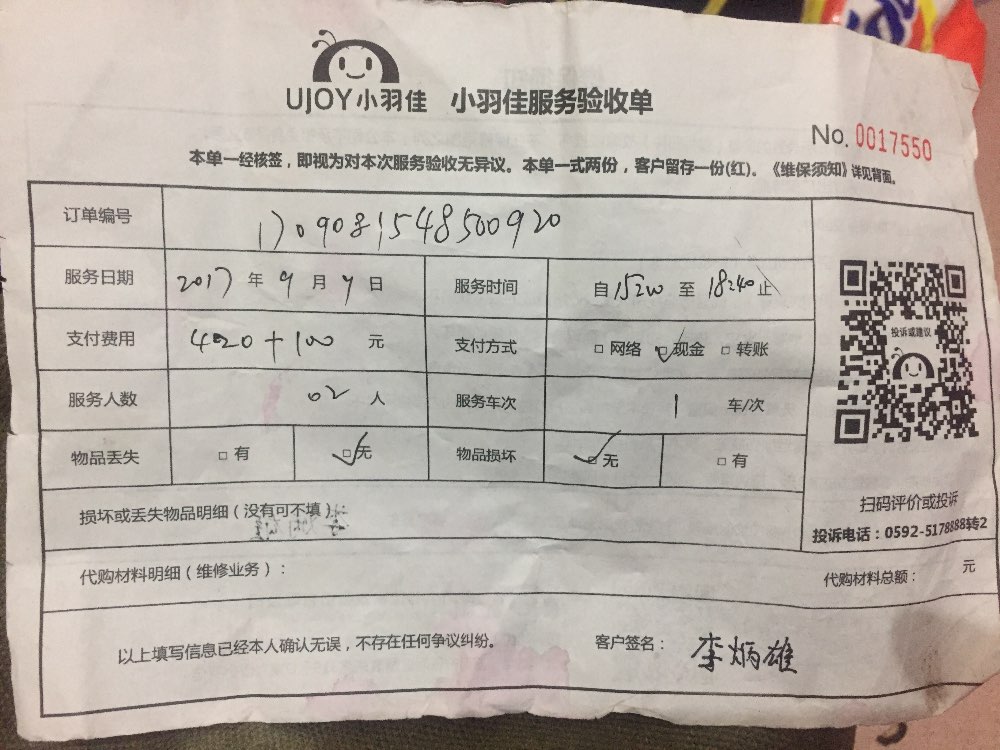 UJOY小羽佳 小羽佳服务验收单
No. 0017550
本单一经核签，即视为对本次服务验收无异议。本单一式两份，客户留存一份(红)。《维保须知》详见背面。
订单编号 1709081548500920
服务日期 2017 年 9 月 9 日 服务时间 自 15:20 至 18:40 止
支付费用 420+100 元 支付方式 □ 网络 ☑ 现金 □ 转账
服务人数 02 人 服务车次 1 车/次
物品丢失 □ 有 ☑ 无 物品损坏 ☑ 无 □ 有
投诉或建议
扫码评价或投诉
投诉电话：0592-5178888转2
损坏或丢失物品明细（没有可不填）
代购材料明细（维修业务）： 代购材料总额： 元
以上填写信息已经本人确认无误，不存在任何争议纠纷。 客户签名： 李炳雄